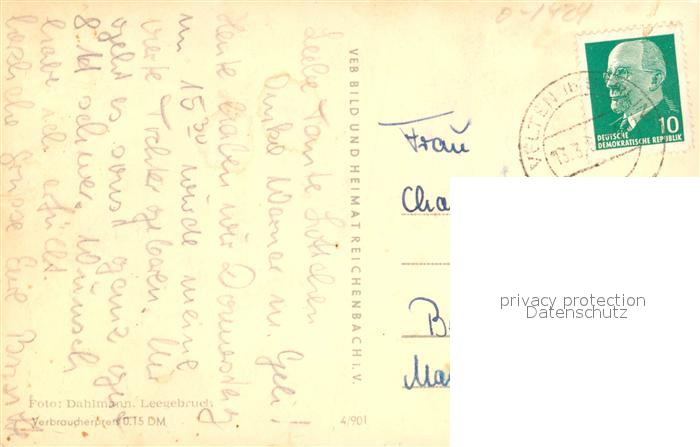 Liebe Tante Lottchen
Onkel Werner u. Gabi!
Heute haben wir Donnerstag
um 15 30 wurde meine
vierte Tochter geboren. Mir
geht es sonst ganz gut
8 schwer. Wunsch
habe ich erfüllt.
Herzliche Grüsse Eure
VEB BILD UND HEIMAT REICHENBACH i. V.
0-1424
VELTEN
13.3.
10
DEUTSCHE
DEMOKRATISCHE REPUBLIK
Frau
Cha
B
Ma
privacy protection
Datenschutz
Foto: Dahlmann, Leegebruch
Verbraucherpreis 0.15 DM
4/901